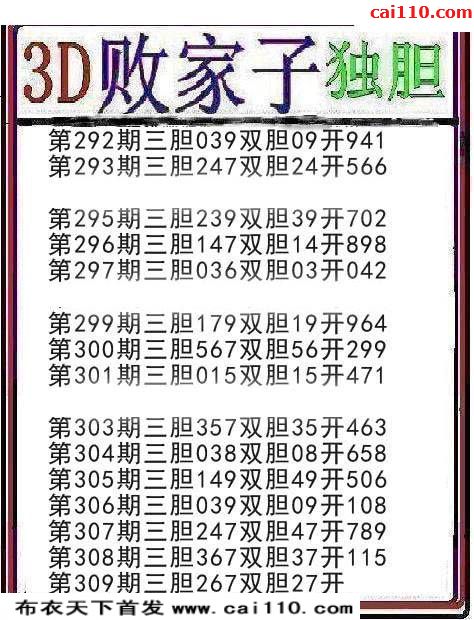 cai110.com
3D败家子独胆
第292期三胆039双胆09开941
第293期三胆247双胆24开566
第295期三胆239双胆39开702
第296期三胆147双胆14开898
第297期三胆036双胆03开042
第299期三胆179双胆19开964
第300期三胆567双胆56开299
第301期三胆015双胆15开471
第303期三胆357双胆35开463
第304期三胆038双胆08开658
第305期三胆149双胆49开506
第306期三胆039双胆09开108
第307期三胆247双胆47开789
第308期三胆367双胆37开115
第309期三胆267双胆27开
布衣天下首发 www.cai110.com